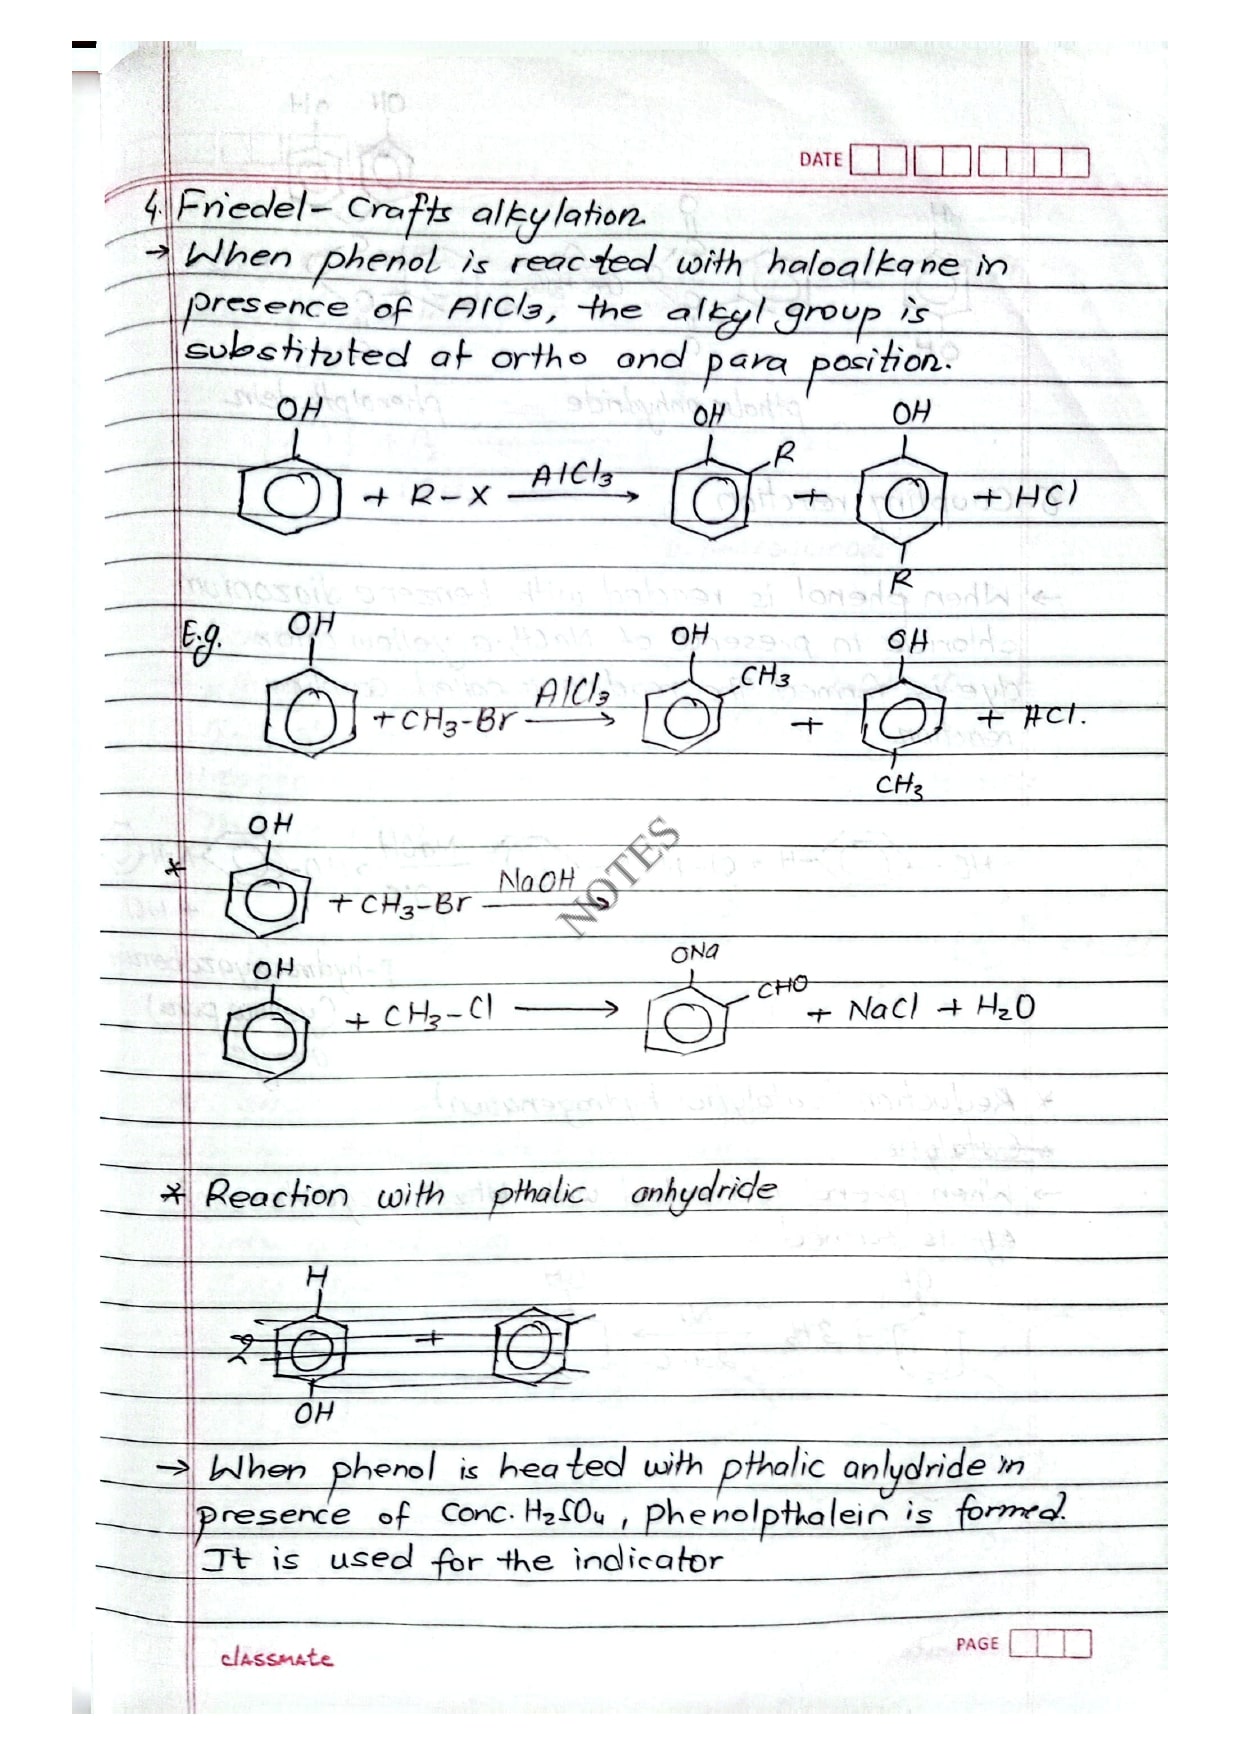 DATE
4. Friedel- Crafts alkylation
→ When phenol is reacted with haloalkane in
presence of AlCl3, the alkyl group is
substituted at ortho and para position.
OH OH OH
R
+ R-X AlCl3 → + + HCl
R
E.g. OH OH OH
CH3
+ CH3-Br AlCl3 → + + HCl.
CH3
OH
* + CH3-Br NaOH →
NOTES
OH ONa
CHO
+ CH3-Cl → + NaCl + H2O
* Reaction with pthalic anhydride
H
2 +
OH
→ When phenol is heated with pthalic anlydride in
presence of conc. H2SO4, phenolpthalein is formed.
It is used for the indicator
classmate
PAGE